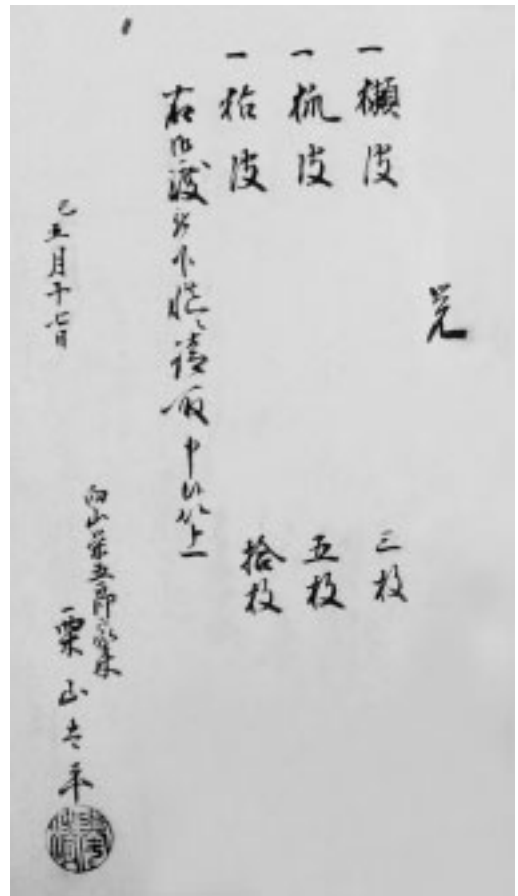 覚
一 獺皮 三枚
一 狐皮 五枚
一 狢皮 拾枚
右御渡被下慥ニ請取申候以上
巳五月十七日
向山栄五郎家来
栗山太平